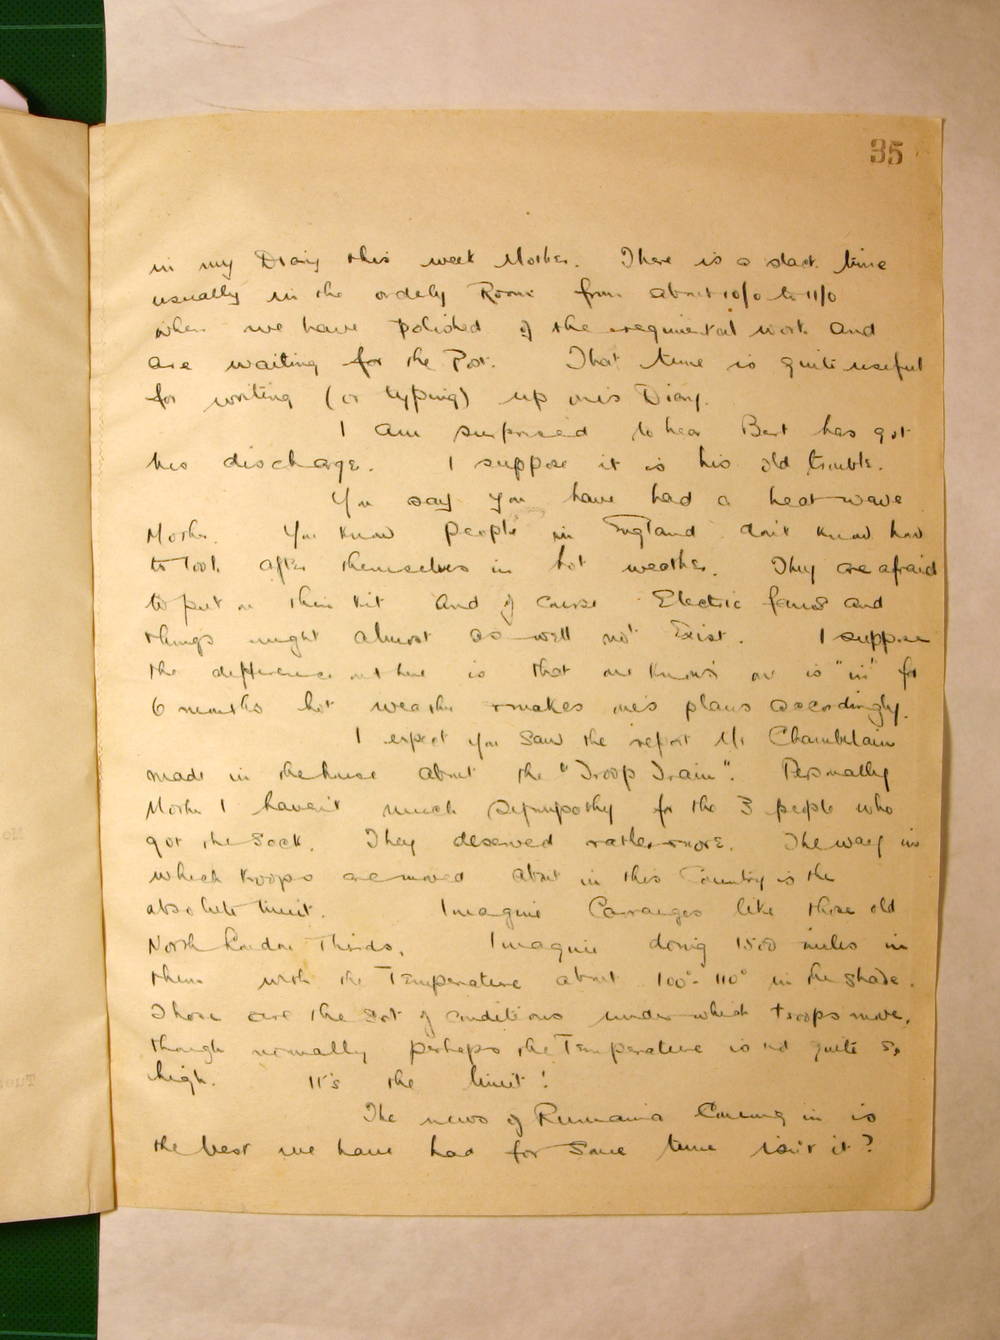 35
in my Diary this week Mother. There is a slack time
usually in the orderly Room from about 10/0 to 11/0
when we have polished of the regimental work and
are waiting for the Post. That time is quite useful
for writing (or typing) up one's Diary.
I am surprised to hear Bert has got
his discharge. I suppose it is his old trouble.
You say you have had a heat wave
Mother. You know people in England don't know how
to look after themselves in hot weather. They are afraid
to put on thin kit and of course Electric fans and
things might almost as well not Exist. I suppose
the difference out here is that one knows one is "in" for
6 months hot weather & makes one's plans accordingly.
I expect you saw the report Mr Chamberlain
made in the house about the "Troop Train". Personally
Mother I haven't much sympathy for the 3 people who
got the sack. They deserved rather more. The way in
which troops are moved about in this Country is the
absolute limit. Imagine Carraiges like those old
North London Thirds. Imagine doing 1500 miles in
them with the Temperature about 100°-110° in the shade.
Those are the sort of conditions under which troops move,
though normally perhaps the Temperature is not quite so
high. It's the limit!
The news of Rumania Coming in is
the best we have had for some time isn't it?